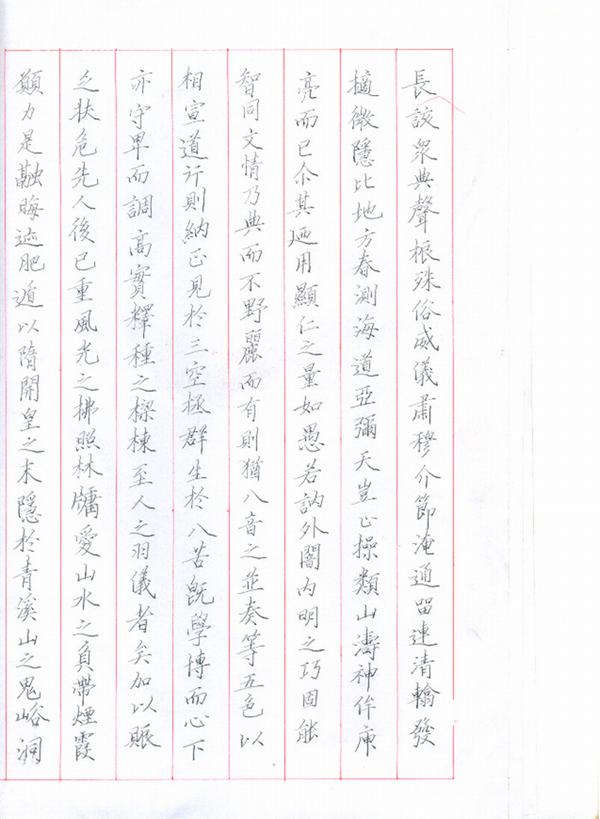 長該衆典聲振殊俗威儀肅穆介節淹通留連清翰發
擿微隱比地方春測海道亞彌天豈止操類山濤神侔庾
亮而已尒其廼用顯仁之量如愚若訥外闇内明之巧固能
智同文情乃典而不野麗而有則猶八音之並奏等五色以
相宣道行則納正見於三空拯群生於八苦旣學博而心下
亦守卑而調高實釋種之樑棟至人之羽儀者矣加以賑
乏扶危先人後己重風光之拂照林牖愛山水之負帶煙霞
願力是融晦迹肥遁以隋開皇之末隱於青溪山之鬼峪洞